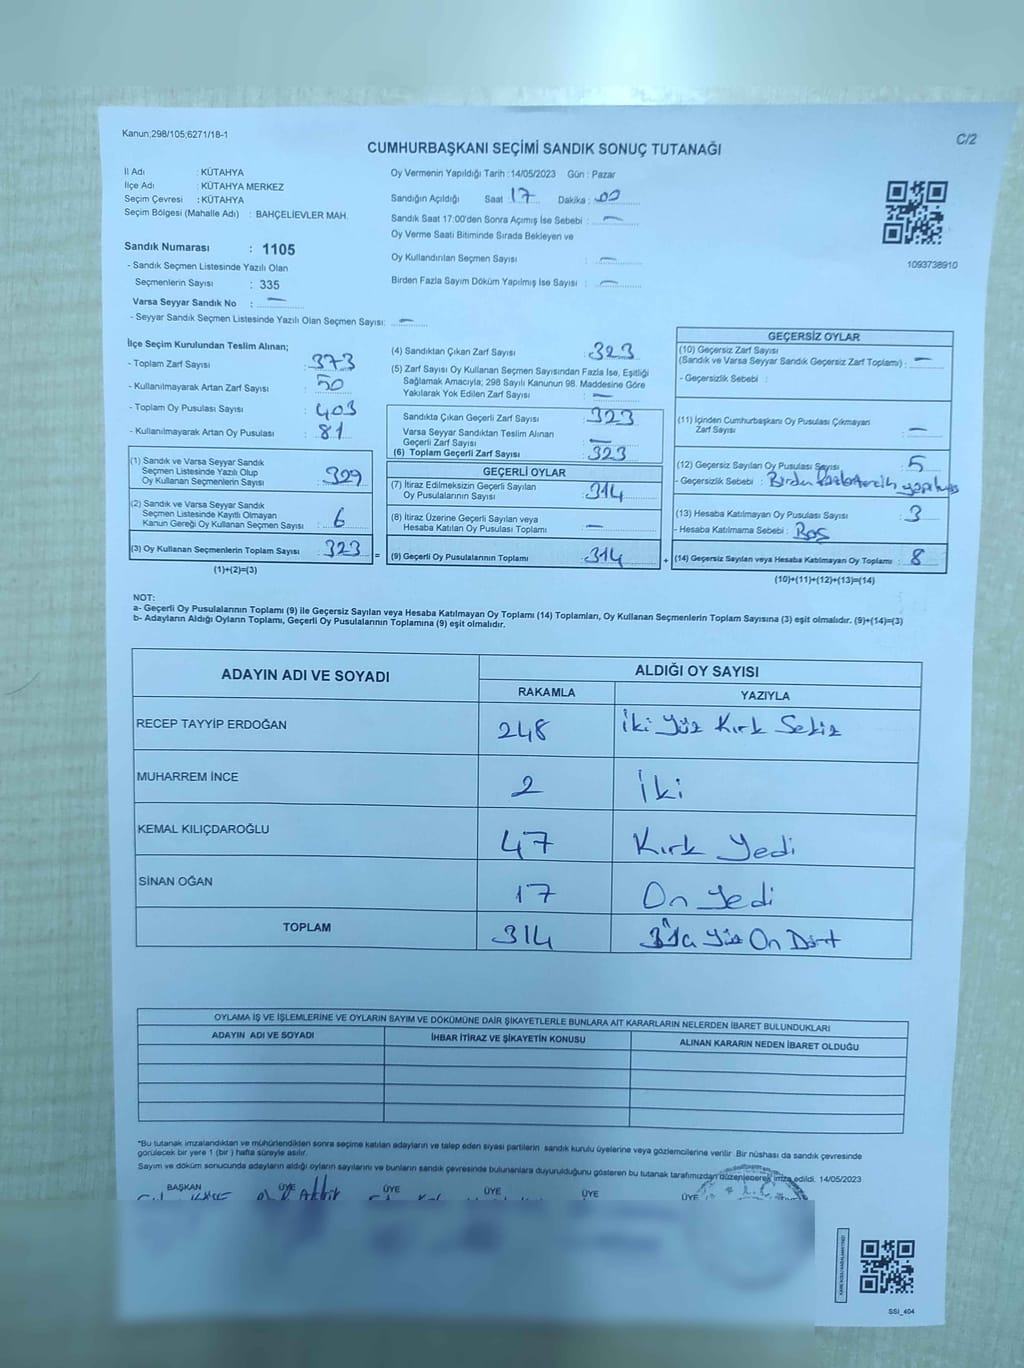 Kanun;298/105;6271/18-1
C/2
CUMHURBAŞKANI SEÇİMİ SANDIK SONUÇ TUTANAĞI
İl Adı : KÜTAHYA
İlçe Adı : KÜTAHYA MERKEZ
Seçim Çevresi : KÜTAHYA
Seçim Bölgesi (Mahalle Adı) : BAHÇELİEVLER MAH.
Sandık Numarası : 1105
- Sandık Seçmen Listesinde Yazılı Olan
Seçmenlerin Sayısı : 335
Varsa Seyyar Sandık No : —
- Seyyar Sandık Seçmen Listesinde Yazılı Olan Seçmen Sayısı: —
Oy Vermenin Yapıldığı Tarih : 14/05/2023 Gün : Pazar
Sandığın Açıldığı Saat : 17 Dakika : 00
Sandık Saat 17:00'den Sonra Açımış İse Sebebi : —
Oy Verme Saati Bitiminde Sırada Bekleyen ve
Oy Kullandırılan Seçmen Sayısı : —
Birden Fazla Sayım Döküm Yapılmış İse Sayısı : —
1093738910
İlçe Seçim Kurulundan Teslim Alınan;
- Toplam Zarf Sayısı : 373
- Kullanılmayarak Artan Zarf Sayısı : 50
- Toplam Oy Pusulası Sayısı : 403
- Kullanılmayarak Artan Oy Pusulası : 81
(1) Sandık ve Varsa Seyyar Sandık
Seçmen Listesinde Yazılı Olup
Oy Kullanan Seçmenlerin Sayısı : 329
(2) Sandık ve Varsa Seyyar Sandık
Seçmen Listesinde Kayıtlı Olmayan
Kanun Gereği Oy Kullanan Seçmen Sayısı : 6
(3) Oy Kullanan Seçmenlerin Toplam Sayısı : 323
(1)+(2)=(3)
(4) Sandıktan Çıkan Zarf Sayısı : 323
(5) Zarf Sayısı Oy Kullanan Seçmen Sayısından Fazla İse, Eşitliği
Sağlamak Amacıyla; 298 Sayılı Kanunun 98. Maddesine Göre
Yakılarak Yok Edilen Zarf Sayısı : —
Sandıkta Çıkan Geçerli Zarf Sayısı : 323
Varsa Seyyar Sandıktan Teslim Alınan
Geçerli Zarf Sayısı : —
(6) Toplam Geçerli Zarf Sayısı : 323
GEÇERLİ OYLAR
(7) İtiraz Edilmeksizin Geçerli Sayılan
Oy Pusulalarının Sayısı : 314
(8) İtiraz Üzerine Geçerli Sayılan veya
Hesaba Katılan Oy Pusulası Toplamı : —
= (9) Geçerli Oy Pusulalarının Toplamı : 314
GEÇERSİZ OYLAR
(10) Geçersiz Zarf Sayısı
(Sandık ve Varsa Seyyar Sandık Geçersiz Zarf Toplamı) : —
- Geçersizlik Sebebi :
(11) İçinden Cumhurbaşkanı Oy Pusulası Çıkmayan
Zarf Sayısı : —
(12) Geçersiz Sayılan Oy Pusulası Sayısı : 5
- Geçersizlik Sebebi : Birden fazla tercih yapılmış
(13) Hesaba Katılmayan Oy Pusulası Sayısı : 3
- Hesaba Katılmama Sebebi : Boş
+ (14) Geçersiz Sayılan veya Hesaba Katılmayan Oy Toplamı : 8
(10)+(11)+(12)+(13)=(14)
NOT:
a- Geçerli Oy Pusulalarının Toplamı (9) ile Geçersiz Sayılan veya Hesaba Katılmayan Oy Toplamı (14) Toplamları, Oy Kullanan Seçmenlerin Toplam Sayısına (3) eşit olmalıdır. (9)+(14)=(3)
b- Adayların Aldığı Oyların Toplamı, Geçerli Oy Pusulalarının Toplamına (9) eşit olmalıdır.
ADAYIN ADI VE SOYADI ALDIĞI OY SAYISI
RAKAMLA YAZIYLA
RECEP TAYYİP ERDOĞAN 248 İki Yüz Kırk Sekiz
MUHARREM İNCE 2 İki
KEMAL KILIÇDAROĞLU 47 Kırk Yedi
SİNAN OĞAN 17 On Yedi
TOPLAM 314 Yüz On Dört
OYLAMA İŞ VE İŞLEMLERİNE VE OYLARIN SAYIM VE DÖKÜMÜNE DAİR ŞİKAYETLERLE BUNLARA AİT KARARLARIN NELERDEN İBARET BULUNDUKLARI
ADAYIN ADI VE SOYADI İHBAR İTİRAZ VE ŞİKAYETİN KONUSU ALINAN KARARIN NEDEN İBARET OLDUĞU
*Bu tutanak imzalandıktan ve mühürlendikten sonra seçime katılan adayların ve talep eden siyasi partilerin sandık kurulu üyelerine veya gözlemcilerine verilir. Bir nüshası da sandık çevresinde
görülecek bir yere 1 (bir ) hafta süreyle asılır.
Sayım ve döküm sonucunda adayların aldığı oyların sayılarını ve bunların sandık çevresinde bulunanlara duyurulduğunu gösteren bu tutanak tarafımızdan düzenlenerek imza edildi. 14/05/2023
BAŞKAN ÜYE ÜYE ÜYE ÜYE ÜYE
SSİ_404